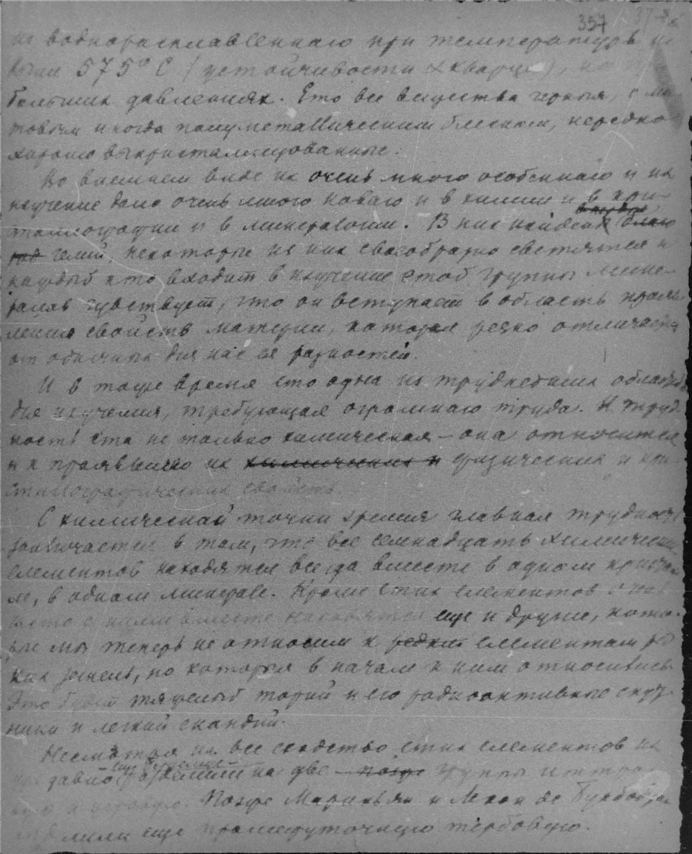 357
при температуре
выше 575°С (устойчивости кварца), но при
больших давлениях. Ето все вещества черныя, с ма
товым иногда полуметаллическим блеском, нередко
хорошо выкристализованные.
Во внешнем виде их очень много особеннаго и их
изучение дало очень много новаго и в химии и в кри
таллографии и в минералогии. В них найден
гелий, некоторые из них своеобразно светятся и
каждый кто входит в изучение етой группы мине-
ралов чувствует, что он вступает в область прояв
ления свойств материи, которая резко отличается
от обычных для нас ея разностей.
И в тоже время ето одна из труднейших областей
для изучения, требующая огромнаго труда. И труд
ность ета не только химическая – она относится
и к проявлению их химических и физических и кри
сталлографических свойств.
С химической точки зрения главная трудность
заключается в том, что все семнадцать химических
елементов находятся всегда вместе в одном криста
ле, в одном минерале. Кроме етих елементов
вместе с ними находятся еще и другие, кото
рые мы теперь не относим к редким елементам ред
ких земель, но которыя в начале к ним относились.
Это будет тяжелый торий и его радиоактивные спут
ники и легкий скандий.
Несмотря на все сходство етих елементов их
еще Берцелиус
давно разделили на две группы
Позже Мариньяк и Лекок де Буабодран
еще промежуточную тербовую.